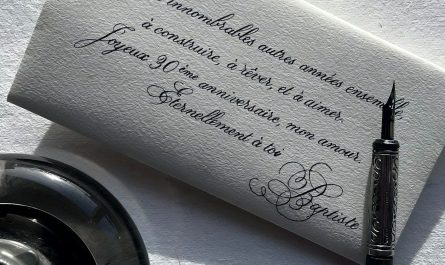 innombrables autres années ensemble
à construire, à rêver, et à aimer.
Joyeux 30 ème anniversaire, mon amour.
Éternellement à toi
Baptiste